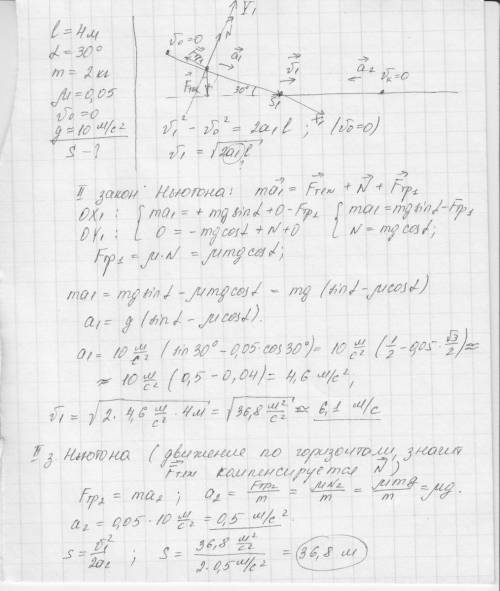 l = 4м
α = 30°
m = 2 кг
μ = 0,05
v₀ = 0
g = 10 м/с²
S - ?
Y₁
v₀ = 0
N
Fтр₁
a₁
Fтяж
30°
S₁
v₁
X₁
a₂
v₂ = 0
v₁² - v₀² = 2a₁l ; (v₀ = 0)
v₁ = √2a₁l
II закон Ньютона: ma₁ = Fтяж + N + Fтр₁
OX₁ : { ma₁ = + mg sinα + 0 - Fтр₁ { ma₁ = mg sinα - Fтр₁
OY₁ : { 0 = - mg cosα + N + 0 { N = mg cosα;
Fтр₁ = μ·N = μmg cosα;
ma₁ = mg sinα - μmg cosα = mg (sinα - μcosα)
a₁ = g (sinα - μcosα).
a₁ = 10 м/с² (sin30° - 0,05·cos30°) = 10 м/с² (1/2 - 0,05·√3/2) ≈
≈ 10 м/с² (0,5 - 0,04) = 4,6 м/с²,
v₁ = √2·4,6 м/с²·4м = √36,8 м²/с² ≈ 6,1 м/с
II з. Ньютона (движение по горизонтали, значит
Fтяж компенсируется N)
Fтр₂ = ma₂ ; a₂ = Fтр₂/m = μN₂/m = μmg/m = μg.
a₂ = 0,05·10 м/с² = 0,5 м/с².
S = v₁²/2a₂ ; S = 36,8 м²/с² / 2·0,5 м/с² = 36,8 м